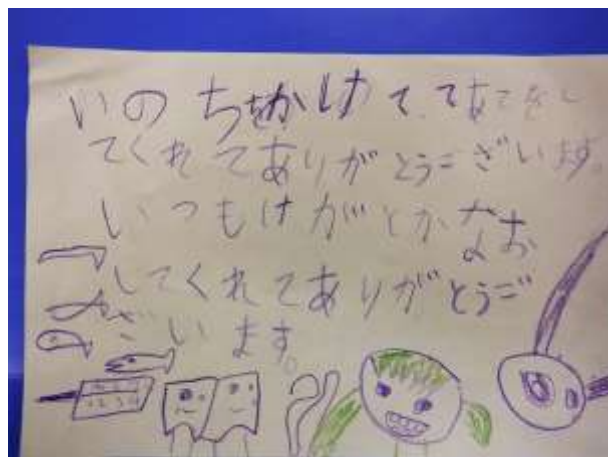 いのちをかけて、てあてをし
てくれてありがとうございます。
いつもけがとかなお
してくれてありがとうご
ざいます。